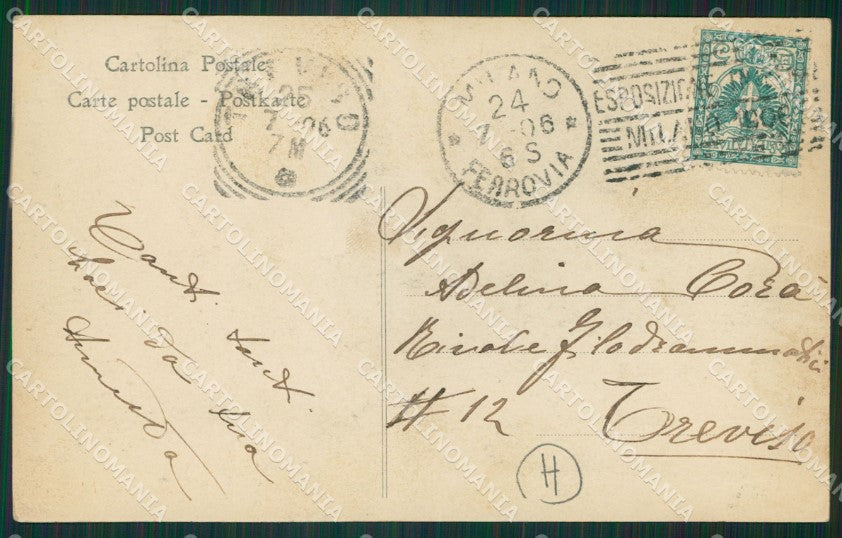 Cartolina Postale
Carte postale - Postkarte
Post Card
TREVISO
25
7-06
7M
MILANO
24
7-06
6 S
FERROVIA
ESPOSIZIONE
MILANO
Tanti tanti
baci da tua
Signorina
Adelina Corà
Riviale Filodrammatici
# 12 Treviso
H
CARTOLINOMANIA